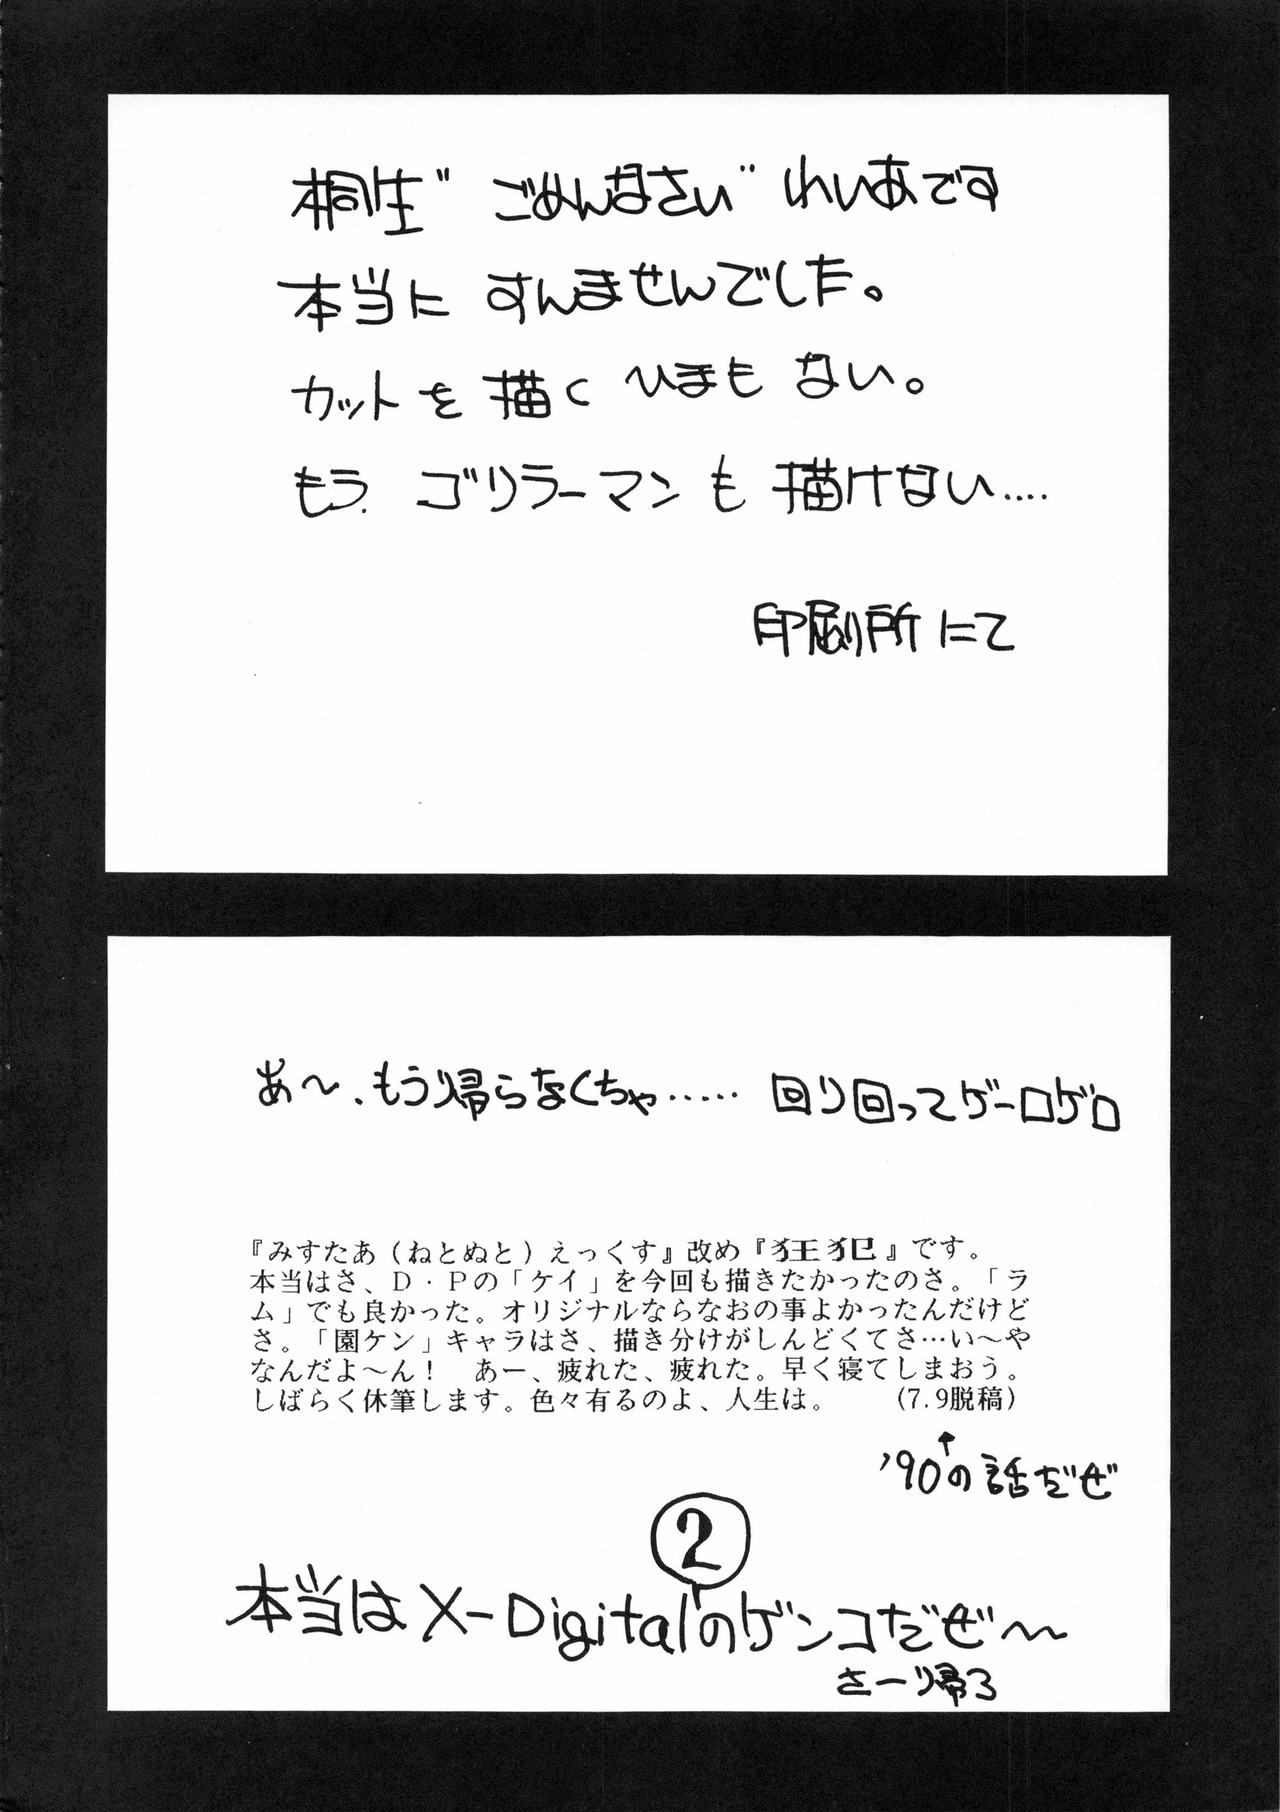 桐生"ごめんなさい"れいあです
本当に すんませんでした。
カットを描く ひまも ない。
もう. ゴリラーマンも 描けない‥‥
印刷所にて
あ〜、もう帰らなくちゃ‥‥‥ 回り回ってゲーロゲロ
『みすたあ（ねとぬと）えっくす』改め『狂犯』です。
本当はさ、D・Pの「ケイ」を今回も描きたかったのさ。「ラ
ム」でも良かった。オリジナルならなおの事よかったんだけど
さ。「園ケン」キャラはさ、描き分けがしんどくてさ…い〜や
なんだよ〜ん！　あー、疲れた、疲れた。早く寝てしまおう。
しばらく休筆します。色々有るのよ、人生は。　(7.9脱稿)
↑
'90の話だぜ
本当はX-Digital②のゲンコだぜ〜
さーり帰ろ